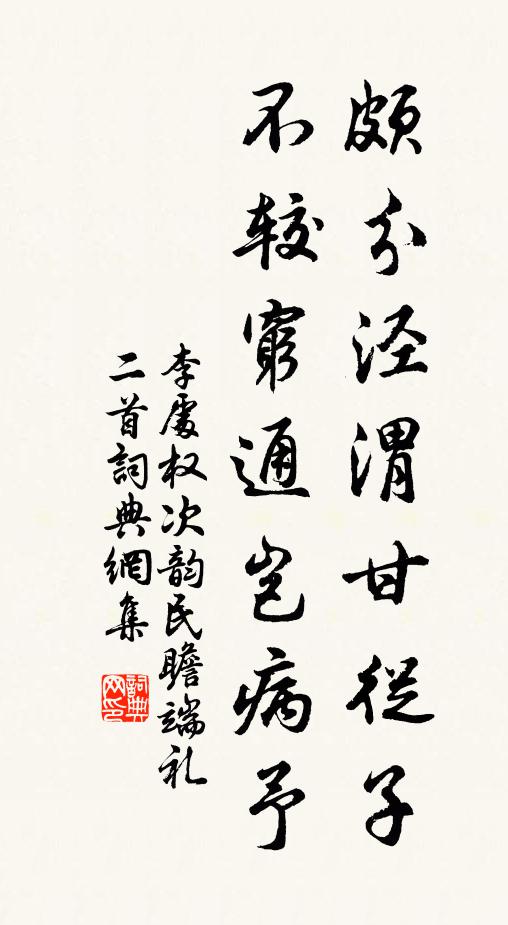 頗分涇渭甘從子
不較窮通豈病予
李處权次韵民瞻端礼
二首詞典網集
詞典网印